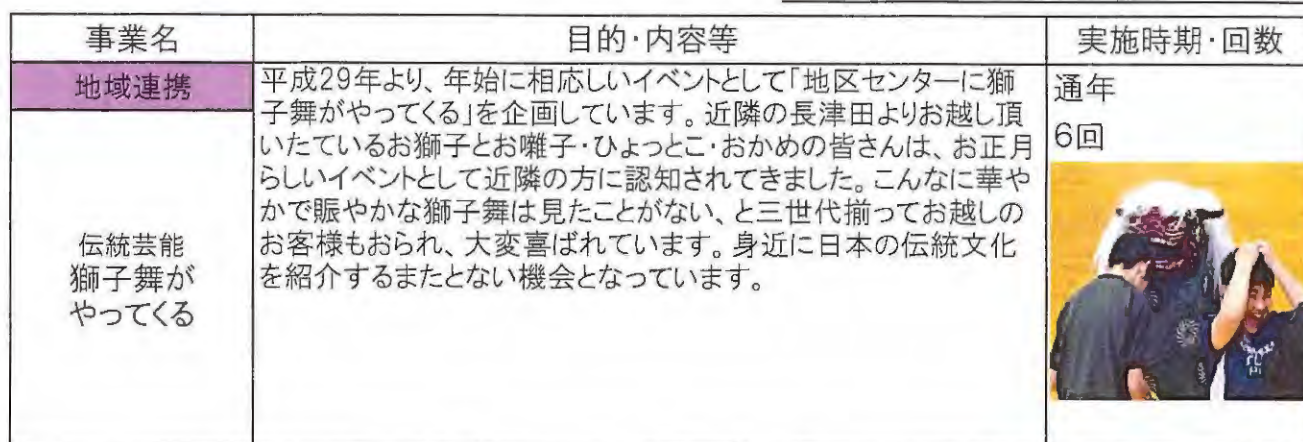 事業名
目的・内容等
実施時期・回数
地域連携
伝統芸能
獅子舞が
やってくる
平成29年より、年始に相応しいイベントとして「地区センターに獅
子舞がやってくる」を企画しています。近隣の長津田よりお越し頂
いたているお獅子とお囃子・ひょっとこ・おかめの皆さんは、お正月
らしいイベントとして近隣の方に認知されてきました。こんなに華や
かで賑やかな獅子舞は見たことがない、と三世代揃ってお越しの
お客様もおられ、大変喜ばれています。身近に日本の伝統文化
を紹介するまたとない機会となっています。
通年
6回